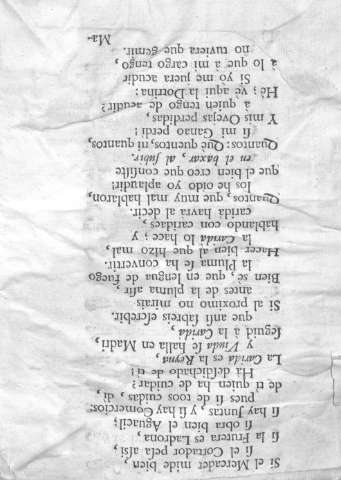 Si el Mercader mide bien,
si el Cortador pesa assi,
si la Frutera es Ladrona,
si obra bien el Aguacil;
si hay Juntas, y si hay Comercios:
pues si de toos cuidas, di,
de ti quien ha de cuidar?
Ha desdichado de ti!
La Carida es la Reyna,
y Viuda se halla en Madri,
seguid à la Carida,
que ansi sabreis escrebir.
Si al proximo no mirais
antes de la pluma asir,
Bien se, que en lengua de fuego
la Pluma se ha convertir.
Hacer bien al que hizo mal,
la Carida lo hace; y
hablando con caridaes,
caridá havrá al decir.
Quantos, que muy mal hablaron,
los he oido yo aplaudir!
que el bien creo que consiste
en el baxar, al subir.
Quantos: Què quentos, ni quantos,
si mi Ganao perdi!
Y mis Ovejas perdidas,
à quien tengo de acudir?
Hè; ve aqui la Dotrina:
Si yo me juera acudir
à lo que à mi cargo tengo,
no tuviera que gemir.
Ma-